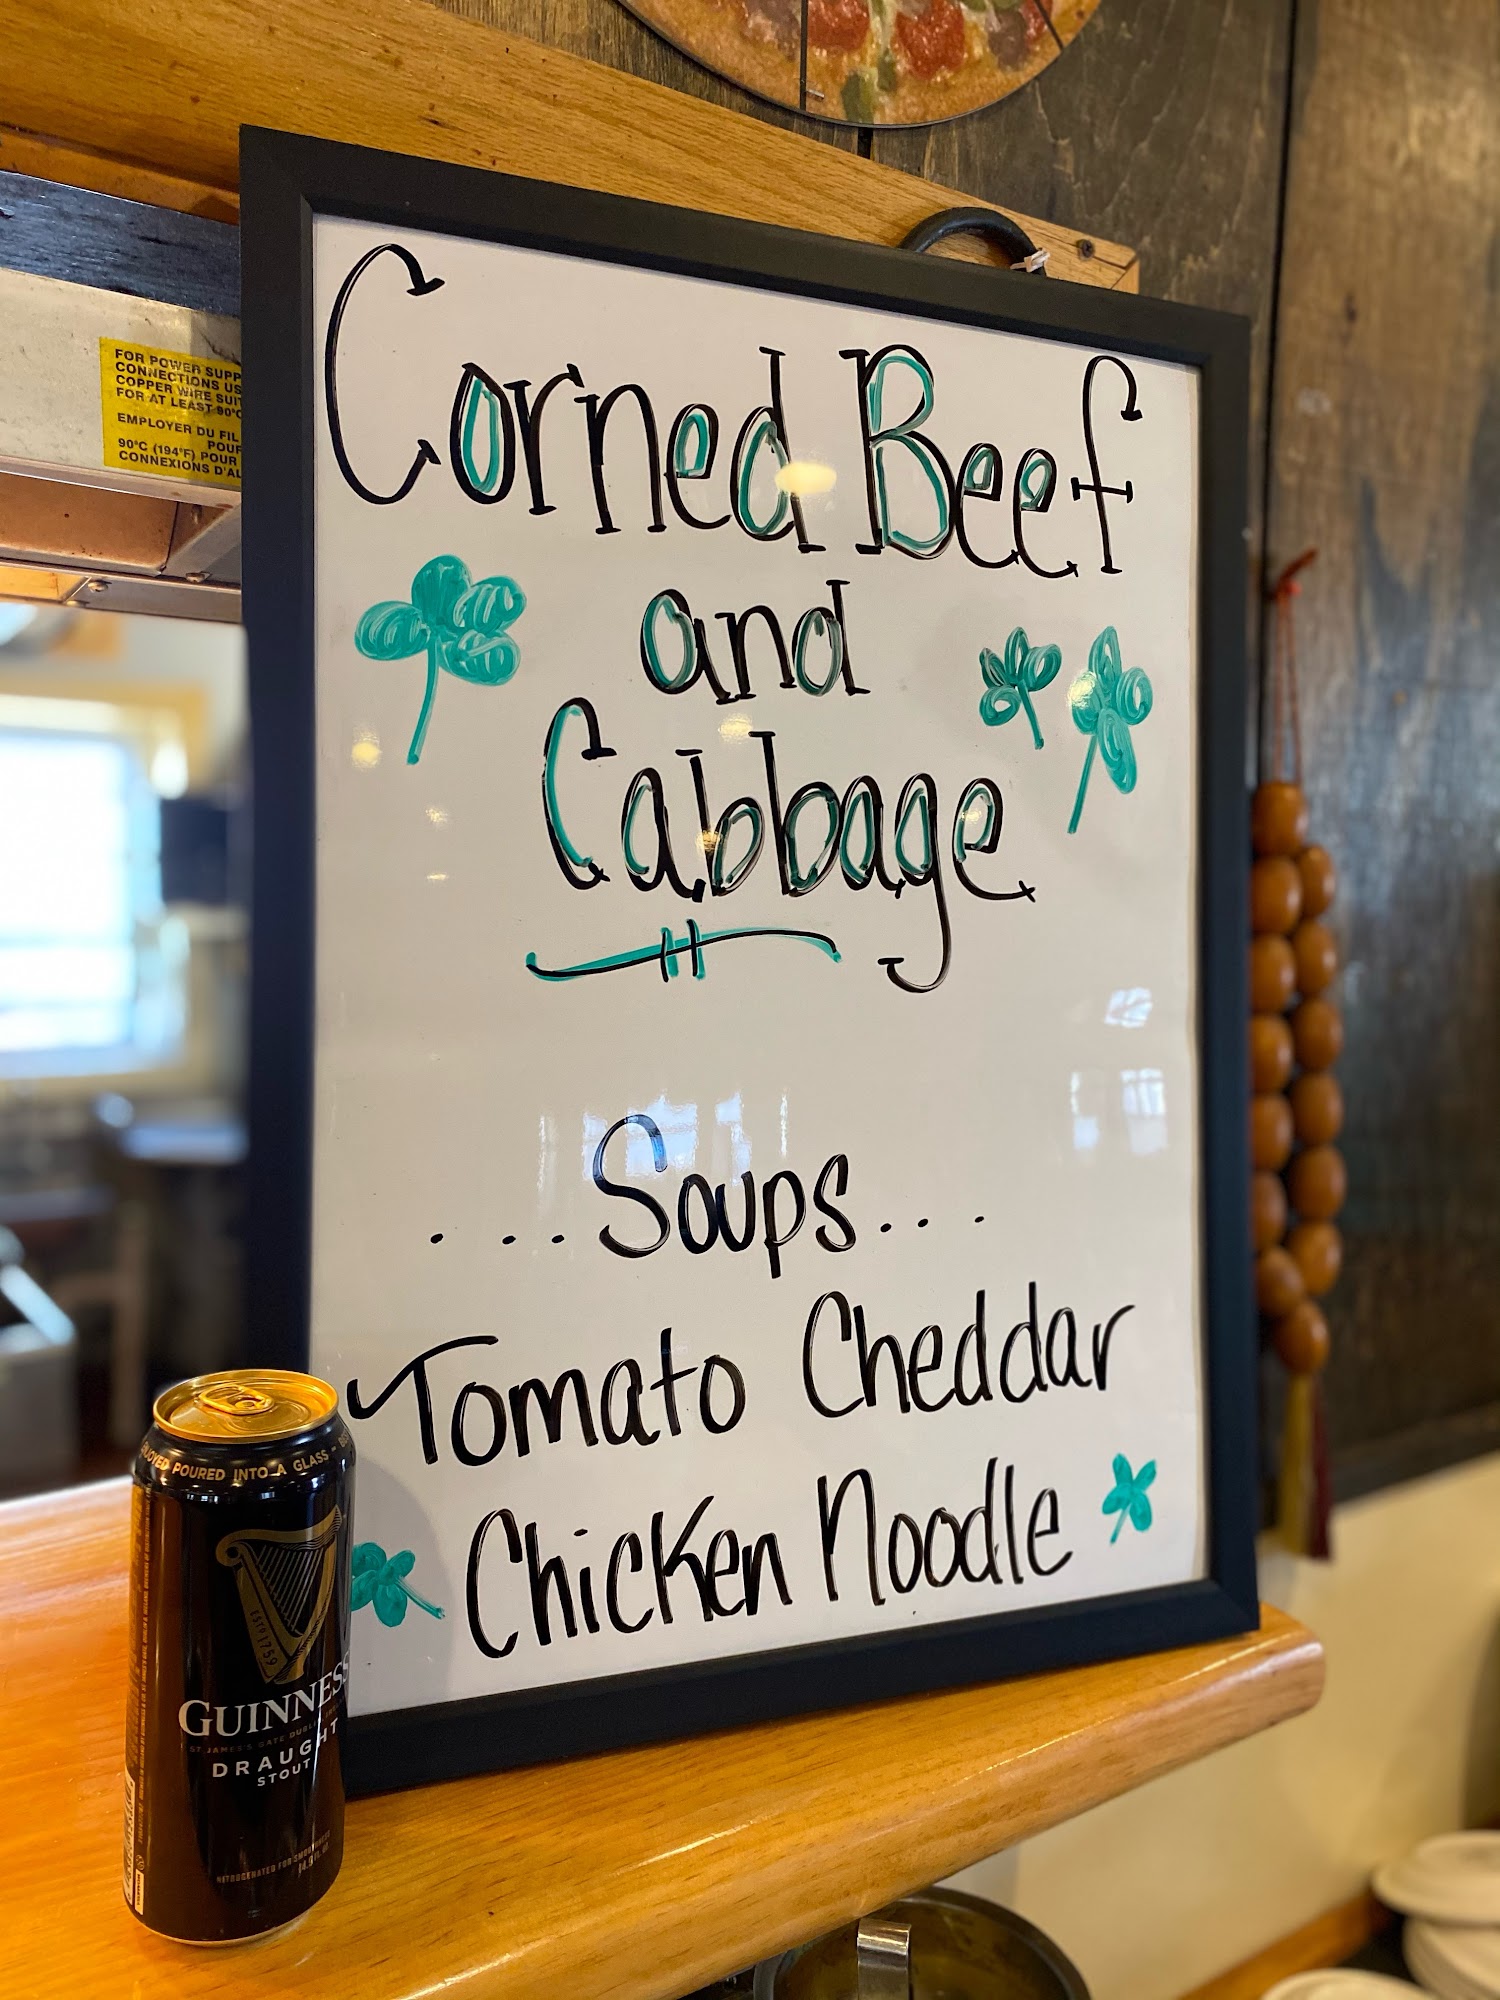 FOR POWER SUPP
CONNECTIONS US
COPPER WIRE SUIT
FOR AT LEAST 90°C
EMPLOYER DU FIL
POUR
90°C (194°F) POUR
CONNEXIONS D'AL
Corned Beef
and
Cabbage
...Soups...
Tomato Cheddar
Chicken Noodle
POURED INTO A GLASS
ESTD 1759
GUINNESS
ST JAMES'S GATE DUBLIN
DRAUGHT
STOUT
14.9 FL OZ